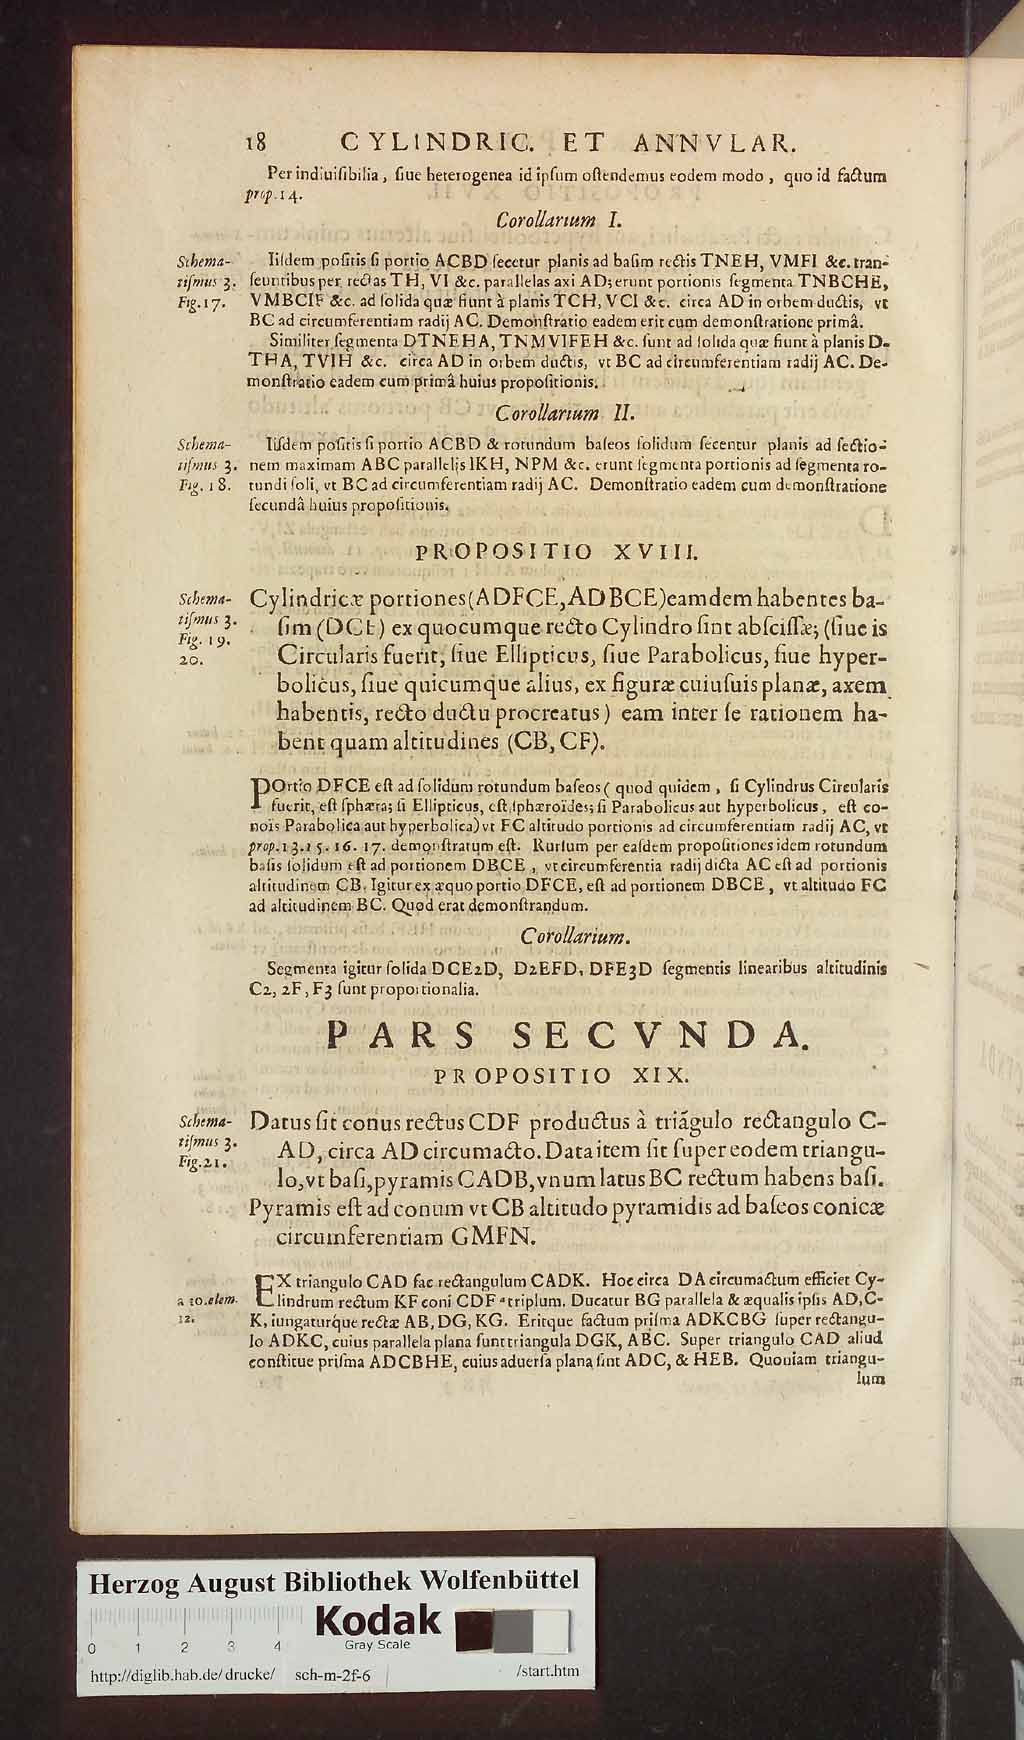 18 CYLINDRIC. ET ANNVLAR.
Per indiuiſibilia, ſiue heterogenea id ipſum oſtendemus eodem modo, quo id factum
prop. 14.
Corollarium I.
Schema-
tiſmus 3.
Fig. 17.
Iiſdem poſitis ſi portio ACBD ſecetur planis ad baſim rectis TNEH, VMFI &c. tran-
ſeuntibus per rectas TH, VI &c. parallelas axi AD; erunt portionis ſegmenta TNBCHE,
VMBCIF &c. ad ſolida quæ fiunt à planis TCH, VCI &c. circa AD in orbem ductis, vt
BC ad circumferentiam radij AC. Demonſtratio eadem erit cum demonſtratione primâ.
Similiter ſegmenta DTNEHA, TNMVIFEH &c. ſunt ad ſolida quæ fiunt à planis D-
THA, TVIH &c. circa AD in orbem ductis, vt BC ad circumferentiam radij AC. De-
monſtratio eadem cum primâ huius propoſitionis.
Corollarium II.
Schema-
tiſmus 3.
Fig. 18.
Iiſdem poſitis ſi portio ACBD & rotundum baſeos ſolidum ſecentur planis ad ſectio-
nem maximam ABC parallelis IKH, NPM &c. erunt ſegmenta portionis ad ſegmenta ro-
tundi ſoli, vt BC ad circumferentiam radij AC. Demonſtratio eadem cum demonſtratione
ſecundâ huius propoſitionis.
PROPOSITIO XVIII.
Schema-
tiſmus 3.
Fig. 19.
20.
Cylindricæ portiones (ADFCE, ADBCE) eamdem habentes ba-
ſim (DCE) ex quocumque recto Cylindro ſint abſciſſæ; (ſiue is
Circularis fuerit, ſiue Ellipticus, ſiue Parabolicus, ſiue hyper-
bolicus, ſiue quicumque alius, ex figuræ cuiuſuis planæ, axem
habentis, recto ductu procreatus) eam inter ſe rationem ha-
bent quam altitudines (CB, CF).
POrtio DFCE eſt ad ſolidum rotundum baſeos (quod quidem, ſi Cylindrus Circularis
fuerit, eſt ſphæra; ſi Ellipticus, eſt ſphæroïdes; ſi Parabolicus aut hyperbolicus, eſt co-
noïs Parabolica aut hyperbolica) vt FC altitudo portionis ad circumferentiam radij AC, vt
prop. 13. 15. 16. 17. demonſtratum eſt. Rurſum per eaſdem propoſitiones idem rotundum
baſis ſolidum eſt ad portionem DBCE, vt circumferentia radij dicta AC eſt ad portionis
altitudinem CB. Igitur ex æquo portio DFCE, eſt ad portionem DBCE, vt altitudo FC
ad altitudinem BC. Quod erat demonſtrandum.
Corollarium.
Segmenta igitur ſolida DCE2D, D2EFD, DFE3D ſegmentis linearibus altitudinis
C2, 2F, F3 ſunt proportionalia.
PARS SECVNDA.
PROPOSITIO XIX.
Schema-
tiſmus 3.
Fig. 21.
Datus ſit conus rectus CDF productus à triãgulo rectangulo C-
AD, circa AD circumacto. Data item ſit ſuper eodem triangu-
lo, vt baſi, pyramis CADB, vnum latus BC rectum habens baſi.
Pyramis eſt ad conum vt CB altitudo pyramidis ad baſeos conicæ
circumferentiam GMFN.
a 10. elem.
12.
EX triangulo CAD fac rectangulum CADK. Hoc circa DA circumactum efficiet Cy-
lindrum rectum KF coni CDF ª triplum. Ducatur BG parallela & æqualis ipſis AD, C-
K, iungaturque rectæ AB, DG, KG. Eritque factum priſma ADKCBG ſuper rectangu-
lo ADKC, cuius parallela plana ſunt triangula DGK, ABC. Super triangulo CAD aliud
conſtitue priſma ADCBHE, cuius aduerſa plana ſint ADC, & HEB. Quoniam triangu-
lum
Herzog August Bibliothek Wolfenbüttel
Kodak
Gray Scale
0 1 2 3 4
http://diglib.hab.de/drucke/ sch-m-2f-6 /start.htm